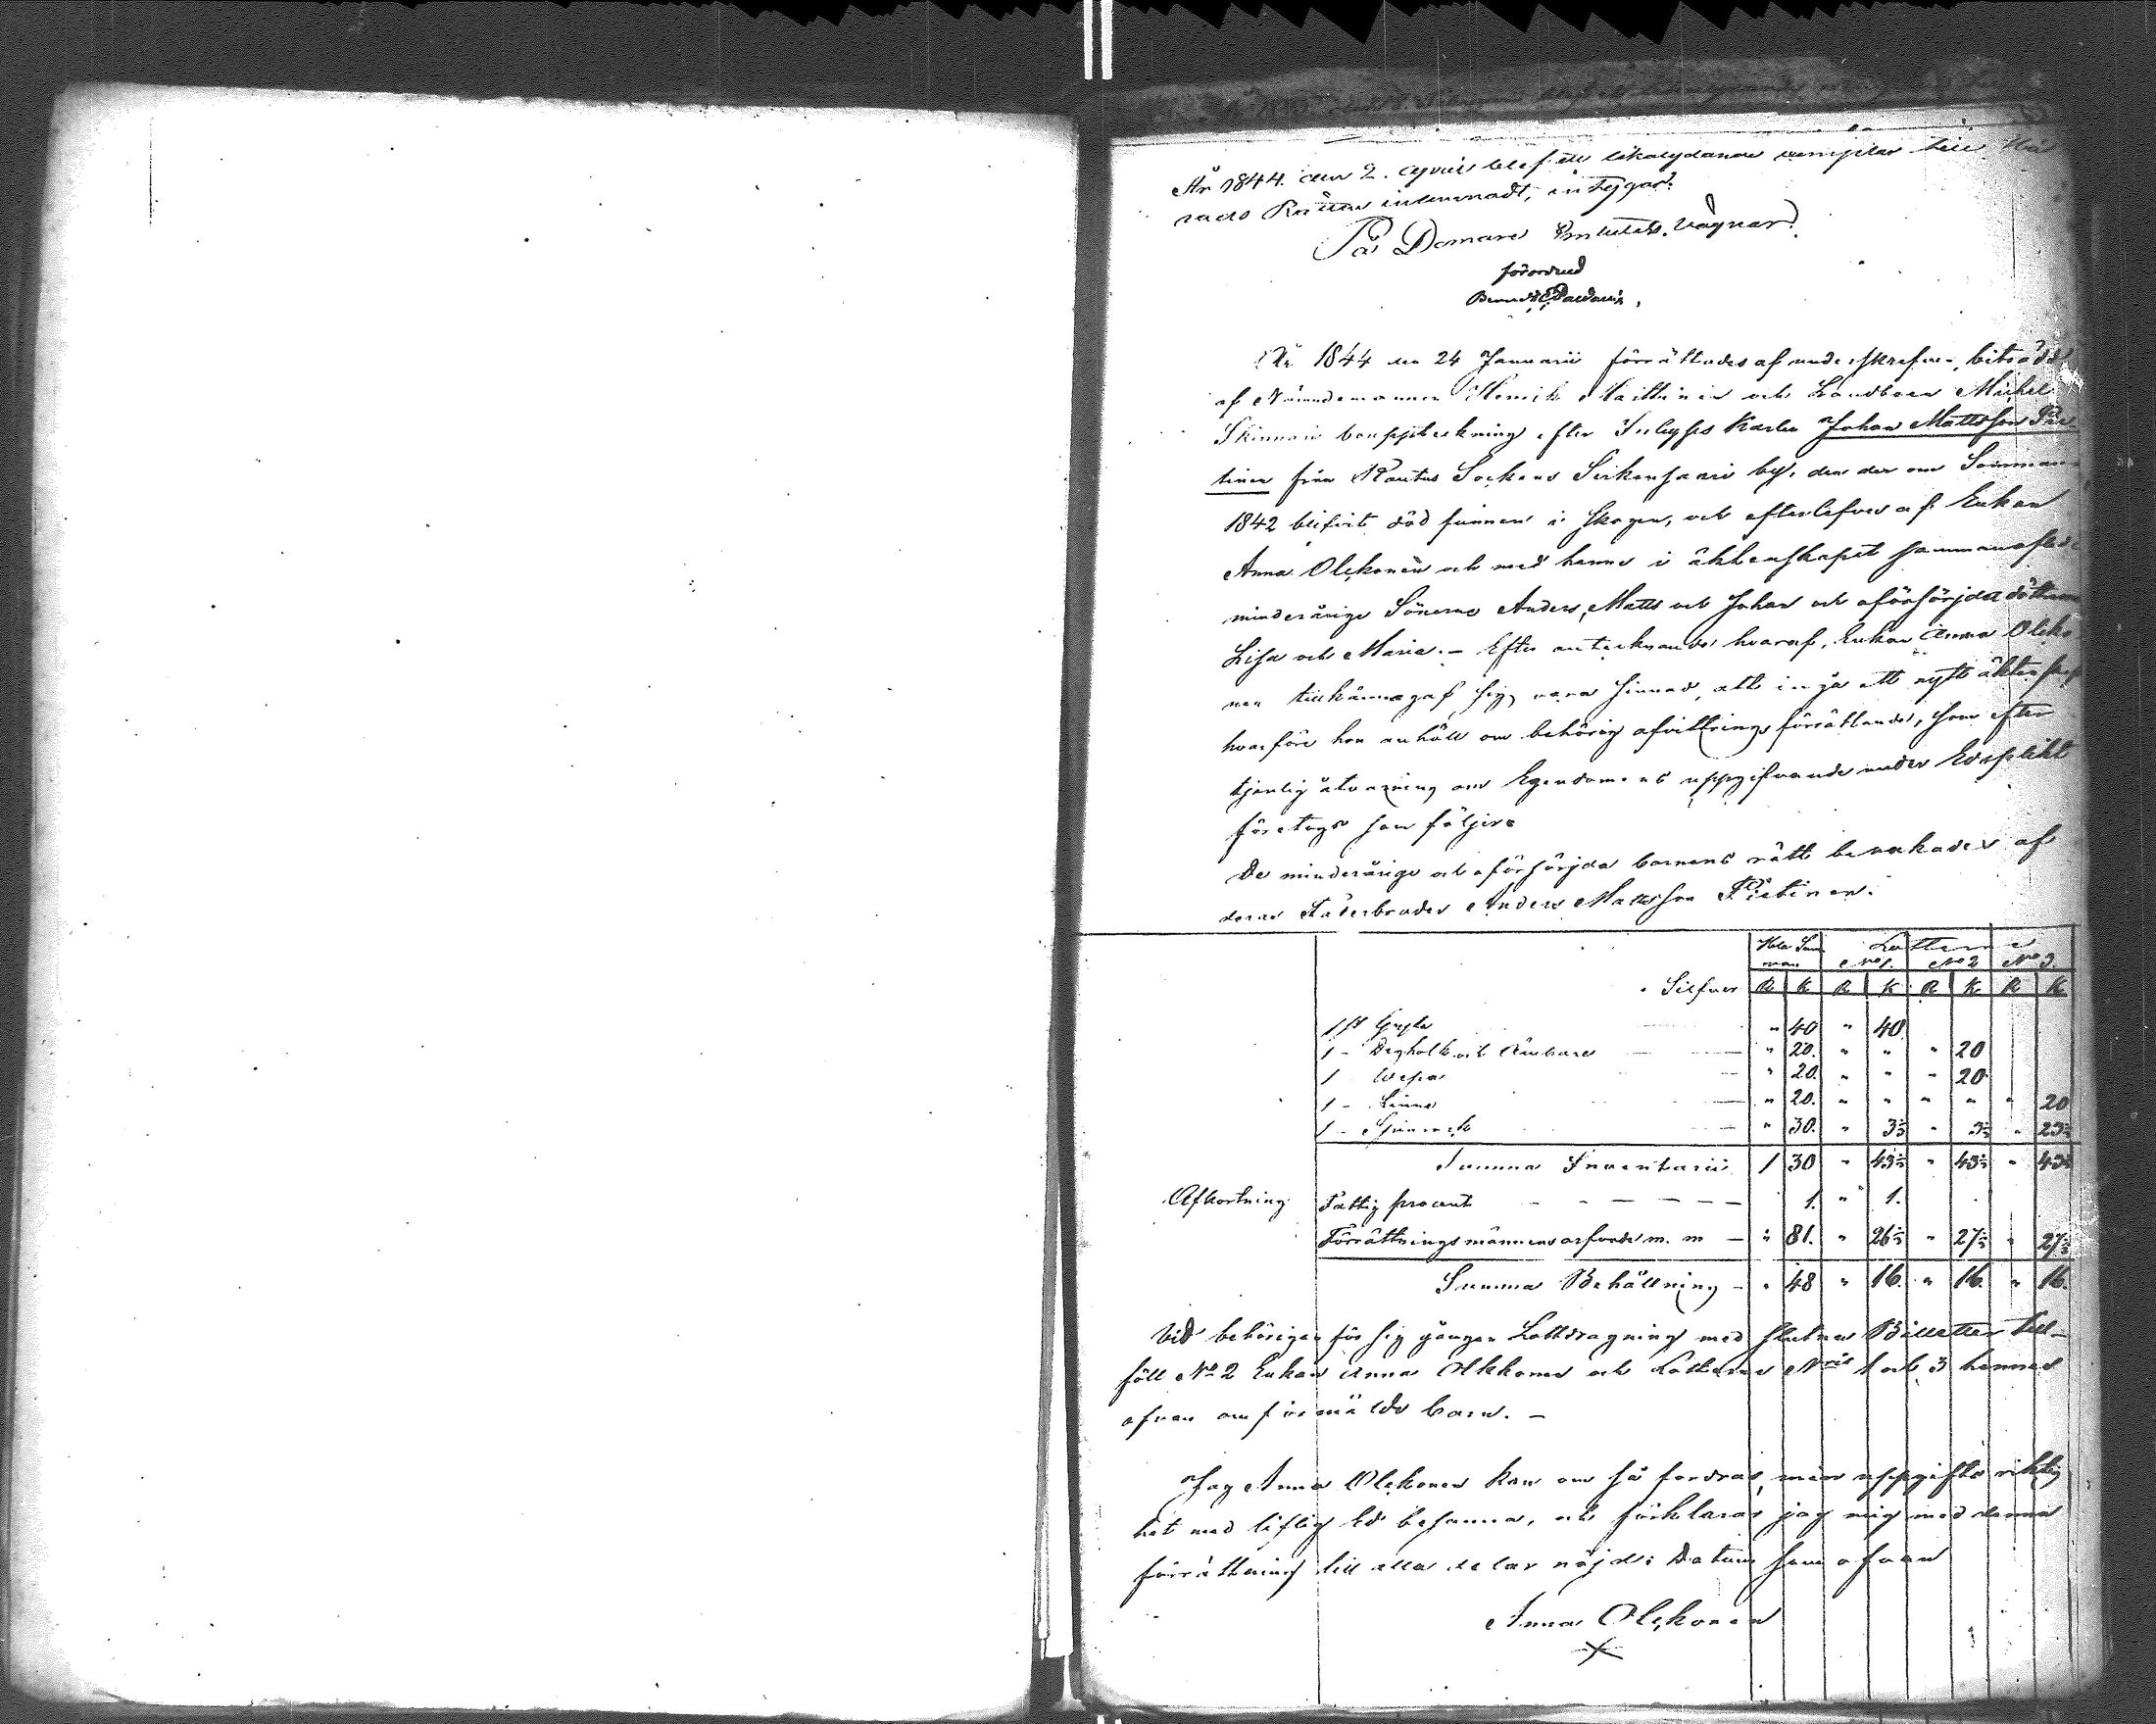 År 1844 den 2 april blef ett likalydande exemplar till Hä-
rads Rätten inlemnadt, intygar.
På Domare Embetets vägnar
förordnad
År 1844 den 24 Januarii förrättades af undeskrefne, biträdd
af Nämndemannen Henrik Maittinen och Landboen Michel
Skinnari bouppteckning efter Inhyses Karlen Johan Mattsson Pie-
tinen från Rautus Sockens Sirkensaari by, den der om Sommaren
1842 blifvit död funnen i skogen, och efterlefves af Enkan
Anna Olckonen och med henne i äktenskapet sammanaflade
minderårige Sönerne Anders, Matts och Johan och oförsörjda döttrarne
Lisa och Maria. – Efter antecknande hvaraf, Enkan Anna Olcko-
nen tillkännagaf sig vara sinnad, att ingå ett nytt äktenskap
hvarföre hon anhåll om behörig afvittrings förrättande, som efter
tjenlig åtvarning om Egendomens uppgifvande under Edsplikt
företogs som följer:
De minderårige och oförsörjda barnens rätt bevakades af
deras Faderbroder Anders Mattsson Pietinen.
Hela Sum Lotterne
man No 1. No 2 No 3.
Silfver R K R K R K R K
1 st Gryta " 40 " 40
1 – Degholk och Ämbare " 20. " " " 20
1 Wefva " 20. " " " 20
1 – Linne " 20. " " " " " 20
1 – Spinrock " 30. " 3⅓ " 3⅓ " 23⅓
Summa Inventarii 1 30 " 43⅓ " 43⅓ " 43⅓
Afkortning Fattig procent 1. " 1.
Förrättningsmännens arfvode m. m – " 81. " 26⅓ " 27⅓ " 27⅓
Summa Behållning – " 48 " 16. " 16. " 16.
Vid behörigen för sig gången Lottdragning med slutna Billetter till-
föll No 2 Enkan Anna Olkkonen och Lotterne Nris 1 och 3 hennes
ofvan omförmälde barn. –
Jag Anna Olckonen kan om så fordras, min uppgifts riktig
het med liflig Ed besanna, och förklarar jag mig med denna
förrättning till alla delar nöjd: Datum som ofvan
Anna Olckonen
X